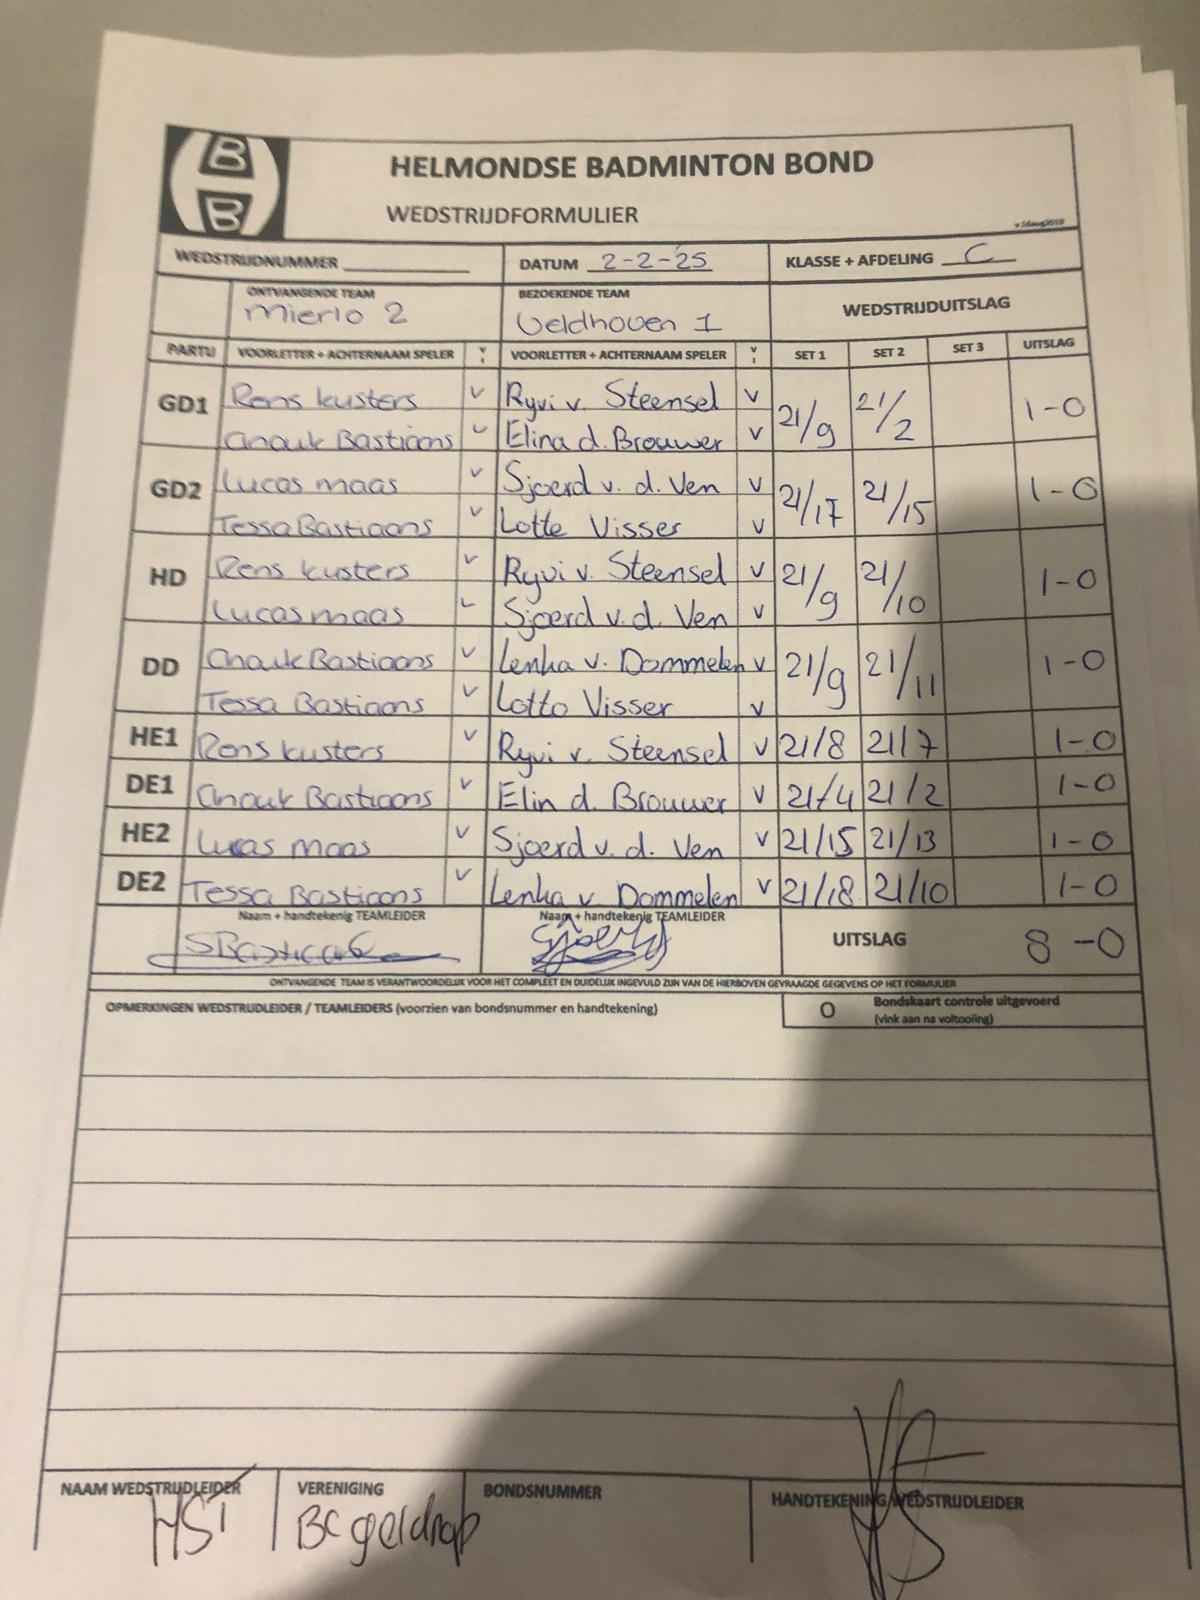 B
B
HELMONDSE BADMINTON BOND
WEDSTRIJDFORMULIER
WEDSTRIJDNUMMER DATUM 2-2-25 KLASSE + AFDELING C
ONTVANGENDE TEAM BEZOEKENDE TEAM WEDSTRIJDUITSLAG
Mierlo 2 Veldhoven 1
PARTIJ VOORLETTER + ACHTERNAAM SPELER VOORLETTER + ACHTERNAAM SPELER SET 1 SET 2 SET 3 UITSLAG
GD1 Rens Kusters v Ryvi v. Steensel v 21/9 21/2 1-0
Anouk Bastiaans v Elina d. Brouwer v
GD2 Lucas Maas v Sjoerd v. d. Ven v 21/17 21/15 1-0
Tessa Bastiaans v Lotte Visser v
HD Rens Kusters v Ryvi v. Steensel v 21/9 21/10 1-0
Lucas Maas v Sjoerd v. d. Ven v
DD Anouk Bastiaans v Lenka v. Dommelen v 21/9 21/11 1-0
Tessa Bastiaans v Lotto Visser v
HE1 Rens Kusters v Ryvi v. Steensel v 21/8 21/7 1-0
DE1 Anouk Bastiaans v Elin d. Brouwer v 21/4 21/2 1-0
HE2 Lucas Maas v Sjoerd v. d. Ven v 21/15 21/13 1-0
DE2 Tessa Bastiaans v Lenka v Dommelen v 21/18 21/10 1-0
Naam + handtekenig TEAMLEIDER Naam + handtekenig TEAMLEIDER UITSLAG 8-0
ONTVANGENDE TEAM IS VERANTWOORDELIJK VOOR HET COMPLEET EN DUIDELIJK INGEVULD ZIJN VAN DE HIERBOVEN GEVRAAGDE GEGEVENS OP HET FORMULIER
OPMERKINGEN WEDSTRIJDLEIDER / TEAMLEIDERS (voorzien van bondsnummer en handtekening) O Bondskaart controle uitgevoerd
(vink aan na voltooiing)
NAAM WEDSTRIJDLEIDER VERENIGING BONDSNUMMER HANDTEKENING WEDSTRIJDLEIDER
HST BC geldrop